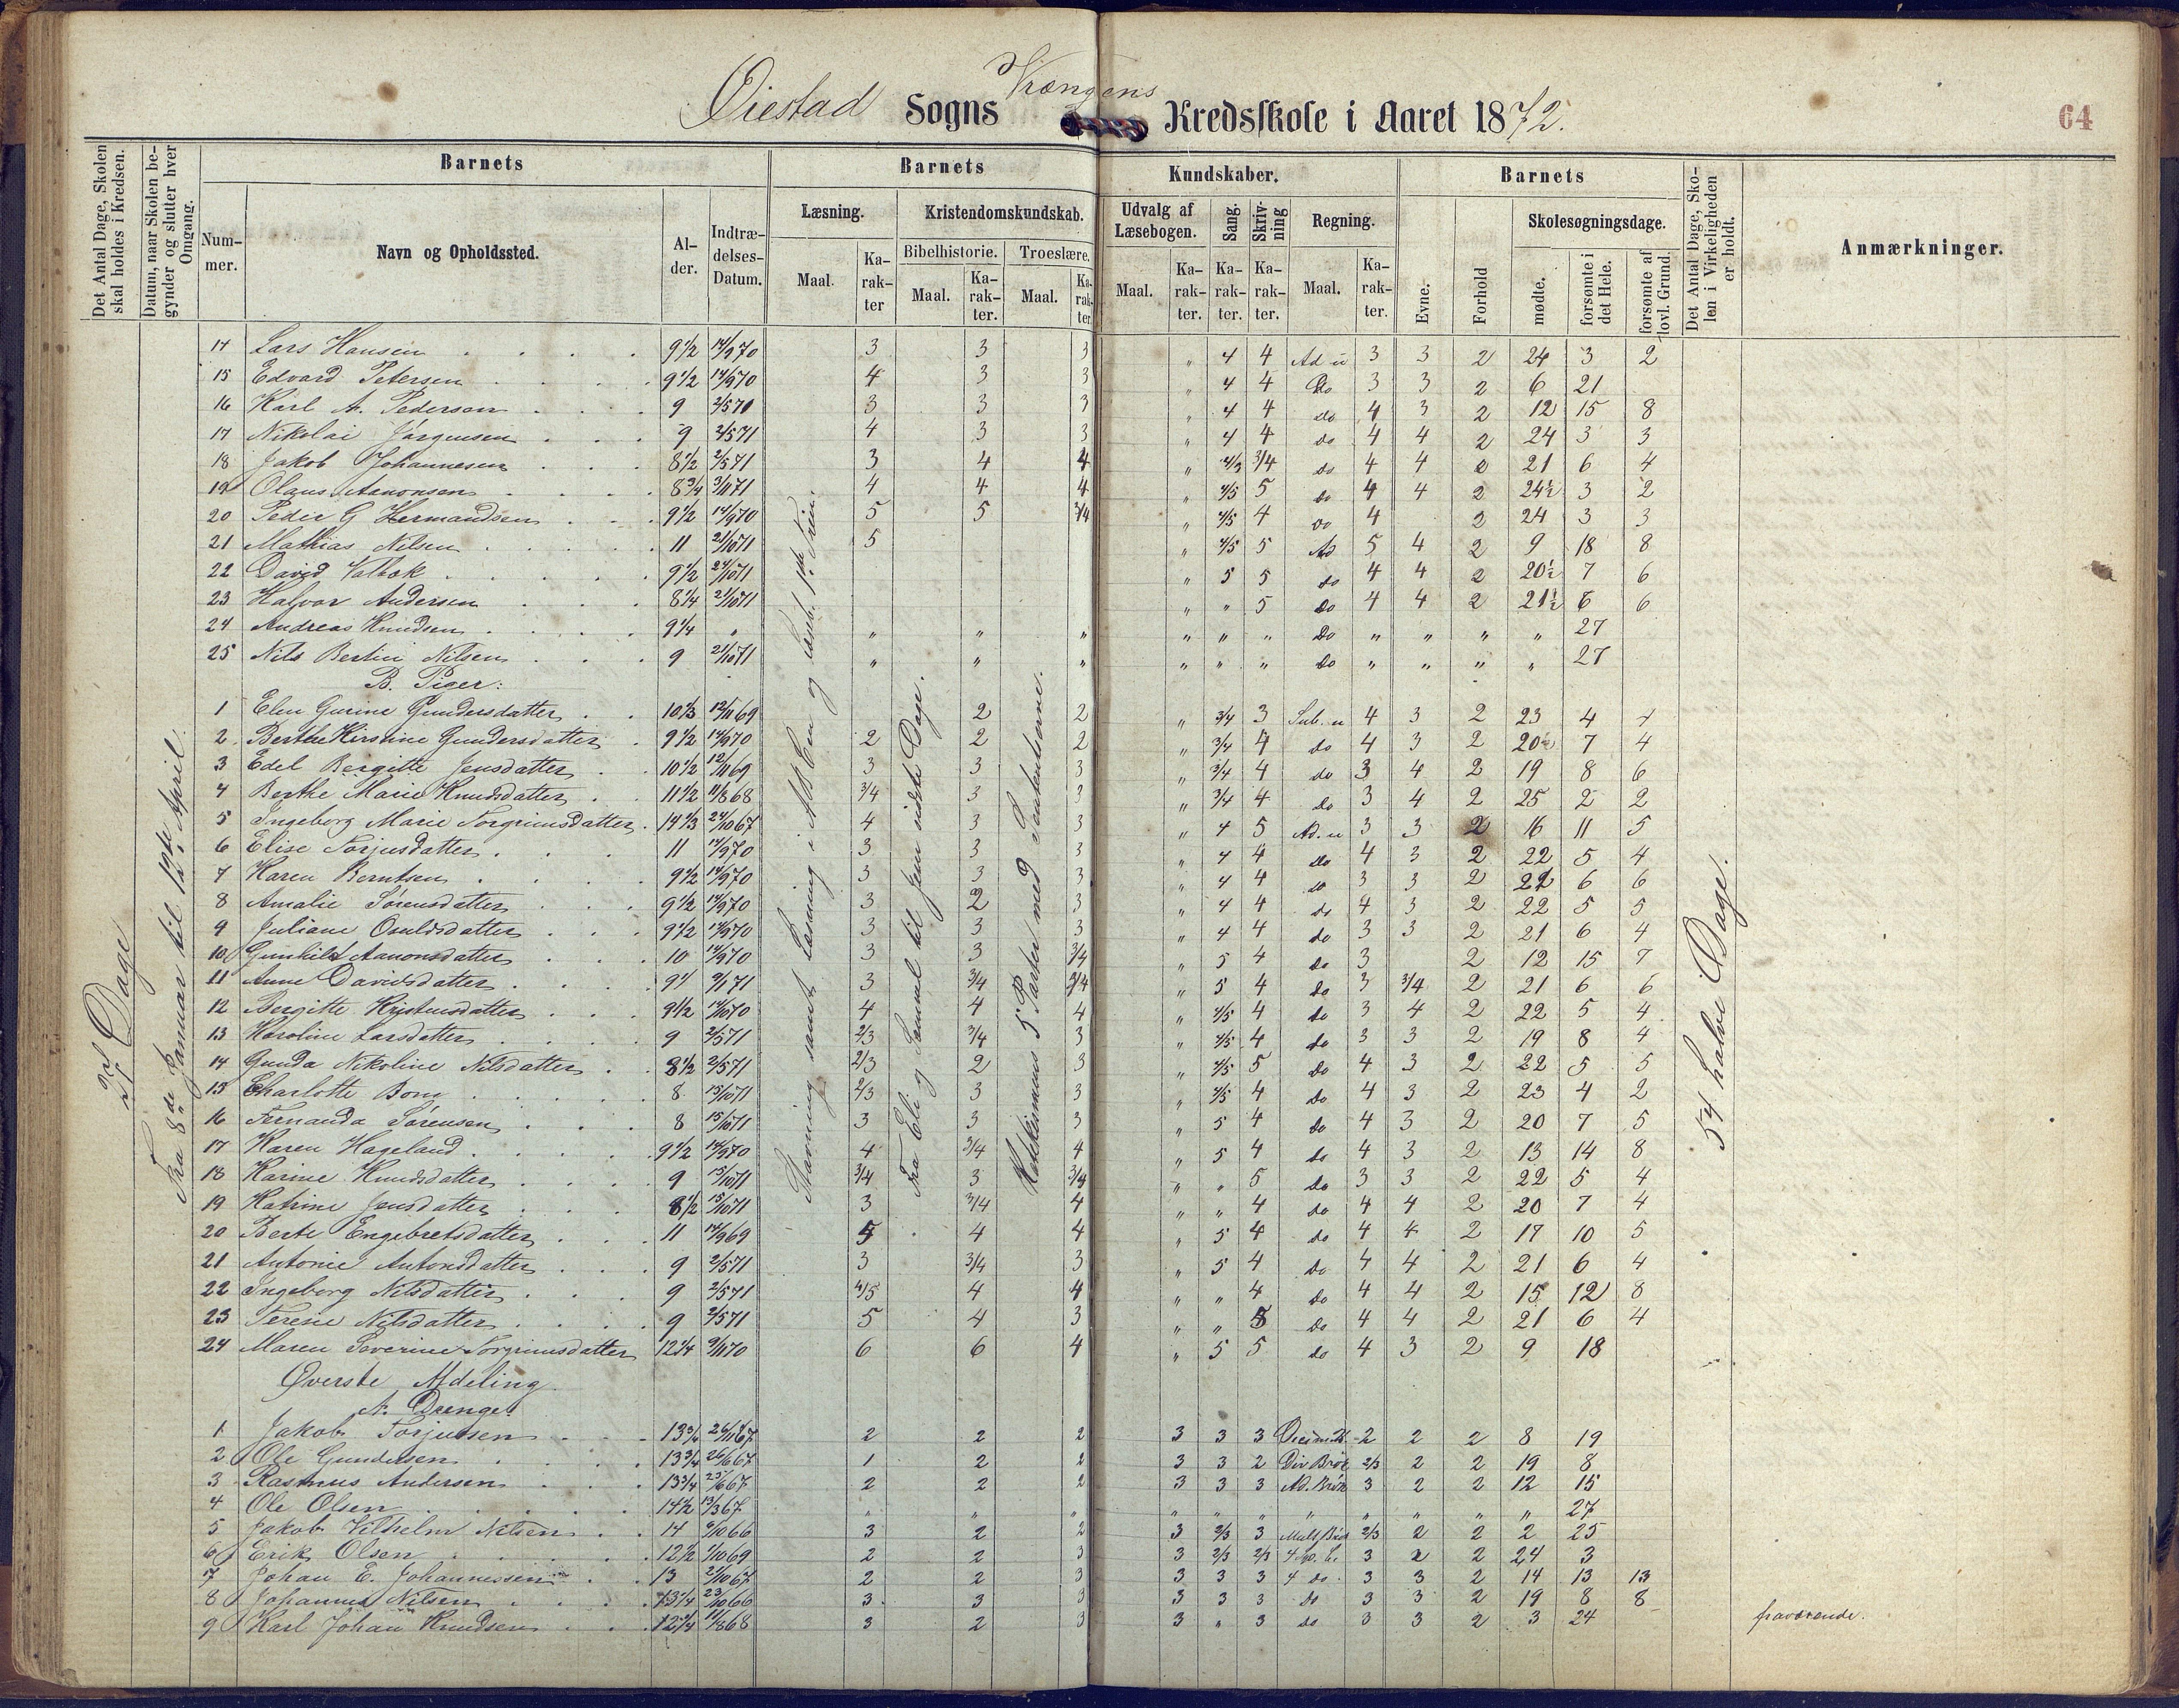 Øiestad Sogns Vrængens Kredsskole i Aaret 1872.
64
Det Antal Dage, Skolen skal holdes i Kredsen.
Datum, naar Skolen begynder og slutter hver Omgang.
Barnets
Nummer.
Navn og Opholdssted.
Alder.
Indtrædelses-Datum.
Barnets Kundskaber.
Læsning.
Maal.
Karakter
Kristendomskundskab.
Bibelhistorie.
Maal.
Karakter.
Troeslære.
Maal.
Karakter.
Udvalg af Læsebogen.
Maal.
Karakter.
Sang.
Karakter.
Skrivning
Karakter.
Regning.
Maal.
Karakter.
Barnets
Evne.
Forhold
Skolesøgningsdage.
mødte.
forsømte i det Hele.
forsømte af lovl. Grund.
Det Antal Dage, Skolen i Virkeligheden er holdt.
Anmærkninger.
27 Dage
Fra 8de Januar til 12te April.
Stavning samt Læsning i ABCen og Læseb. 1ste Trin.
Fra Eli og Samuel til Jesu sidste Dage.
Katekismus 5 Parter med Sententserne.
54 halve Dage.
14 Lars Hansen 9 1/2 14/9 70 3 3 3 " 4 4 Ad u 3 3 2 24 3 2
15 Edvard Petersen 9 1/2 14/9 70 4 3 3 " 4 4 Do 3 3 2 6 21
16 Karl A. Pedersen 9 2/5 71 3 3 3 " 4 4 do 4 3 2 12 15 8
17 Nikolai Jørgensen 9 2/5 71 4 3 3 " 4 4 do 4 4 2 24 3 3
18 Jakob Johannesen 8 1/2 2/5 71 3 4 4 " 3/4 do 4 4 21 6 4
19 Olaus Aanonsen 8 3/4 3/1 71 4 4 4 " 4/5 5 do 4 4 2 24 1/2 3 2
20 Peder G Hermandsen 9 1/2 14/9 70 5 5 3/4 " 4/5 4 do 4 2 24 3 3
21 Mathias Nilsen 11 21/10 71 5 " 4/5 5 Ad 5 4 2 9 18 8
22 David Valbok 9 1/2 24/10 71 " 5 5 do 4 4 2 20 1/2 7 6
23 Halvor Andersen 8 1/4 21/10 71 " " 5 do 4 4 2 21 1/2 6 6
24 Andreas Knudsen 9 1/4 " " " " " " " Do " " " " 27
25 Nils Bertin Nilsen 9 21/10 71 " " " " " " Do " " " " 27
B. Piger:
1 Elen Gurine Gundersdatter 10 1/3 12/11 69 2 2 " 3/4 3 Sub. u 4 3 2 23 4 4
2 Berthe Kirstine Gundersdatter 9 1/2 14/9 70 2 2 2 " 3/4 4 do 4 3 2 20 1/2 7 4
3 Edel Bergitte Jensdatter 10 1/2 12/11 69 3 3 3 " 3/4 4 do 3 4 2 19 8 6
4 Berthe Marie Knudsdatter 11 1/2 11/8 68 3/4 3 3 " 3/4 4 do 3 4 2 25 2 2
5 Ingeborg Marie Torgrimsdatter 14 1/3 24/10 67 4 3 3 " 4 5 Ad. u 3 3 2 16 11 5
6 Elise Torjusdatter 11 14/9 70 3 3 3 " 4 4 do 4 3 2 22 5 4
7 Karen Berntsen 9 1/2 14/9 70 3 3 3 " 4 4 do 3 3 2 21 6 6
8 Amalie Sørensdatter 9 1/2 14/9 70 3 2 3 " 4 4 do 4 3 2 22 5 5
9 Juliane Osuldsdatter 9 1/2 14/9 70 3 3 3 " 4 4 do 3 3 2 21 6 4
10 Gunhild Aanonsdatter 10 14/9 70 3 3 3/4 " 5 4 do 3 2 12 15 7
11 Anne Davidsdatter 9 1/4 9/1 71 3 3/4 3/4 " 5 4 do 3 3/4 2 21 6 6
12 Bergitte Kristensdatter 9 1/2 14/10 70 4 4 4 " 4/5 4 do 3 4 2 22 5 4
13 Karoline Larsdatter 9 2/5 71 2/3 3/4 3 " 4/5 4 do 3 3 2 19 8 4
14 Gunda Nikoline Nilsdatter 8 1/2 2/5 71 2/3 2 3 " 4/5 5 do 4 3 2 22 5 5
15 Charlotte Bom 8 15/10 71 2/3 3 3 " 4/5 4 do 4 3 2 23 4 2
16 Fernanda Sørensen 8 15/10 71 3 3 3 " 5 4 do 4 3 2 20 7 5
17 Karen Hageland 9 1/2 14/9 70 4 3/4 4 " 5 4 do 4 3 2 13 14 8
18 Karine Knudsdatter 9 15/10 71 3/4 3 3/4 " " 5 do 3 3 2 22 5 4
19 Katrine Jensdatter 8 1/2 15/10 71 3 3/4 4 " " 4 do 4 4 2 20 7 4
20 Berte Engebretsdatter 11 14/9 69 5 4 4 " 5 4 do 4 4 2 17 10 5
21 Antonie Antonsdatter 9 2/5 71 3 3/4 3 " 5 4 do 4 4 2 21 6 4
22 Ingeborg Nilsdatter 9 2/5 71 4/5 4 4 " " 4 do 4 4 2 15 12 8
23 Terese Nilsdatter 9 2/5 71 5 4 3 " " 5 do 4 4 2 21 6 4
24 Maren Severine Torgrimsdatter 12 1/4 9/11 70 6 6 4 " 5 5 do 4 3 2 9 18
Øverste Afdeling
A. Drenge.
1 Jakob Torjussen 13 3/4 26/11 67 2 2 2 3 3 3 2 2 2 8 19
2 Ole Gundersen 13 3/4 26/6 67 1 2 2 3 3 2 Div Brøk 2/3 2 2 19 8
3 Rasmus Andersen 13 3/4 25/6 67 2 2 2 3 3 3 Ad. Brøk 3 2 2 12 15
4 Ole Olsen 14 1/2 13/3 67 " " " " " " " " " " " 27
5 Jakob Vilhelm Nilsen 14 6/10 66 3 2 2 3 2/3 3 Mult Brøk 2/3 2 2 2 25
6 Erik Olsen 12 1/2 1/10 69 2 2 3 3 2/3 2/3 3 2 2 24 3
7 Johan E. Johannessen 13 2/10 67 2 2 3 3 3 3 4 do. 3 3 2 14 13 13
8 Johannes Nilsen 13 1/4 23/10 66 3 3 3 3 3 3 do 3 3 2 19 8 8
9 Karl Johan Knudsen 12 3/4 11/8 68 3 2 3 3 " 3 do 3 3 2 3 24 fraværende.